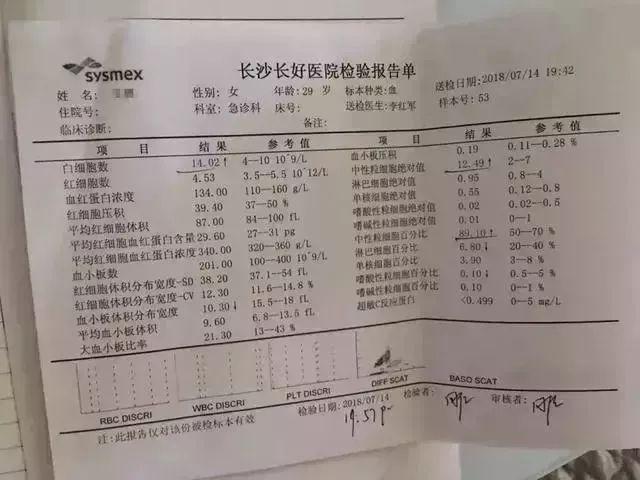 sysmex
长沙长好医院检验报告单
姓 名: 性别: 女 年龄: 29 岁 标本种类: 血 送检日期: 2018/07/14 19:42
住院号: 科室: 急诊科 床号: 送检医生: 李红军 样本号: 53
临床诊断: 备注:
项 目 结 果 参 考 值
白细胞数 14.02↑ 4—10 10^9/L
红细胞数 4.53 3.5—5.5 10^12/L
血红蛋白浓度 134.00 110—160 g/L
红细胞压积 39.40 37—50 %
平均红细胞体积 87.00 84—100 fL
平均红细胞血红蛋白含量 29.60 27—31 pg
平均红细胞血红蛋白浓度 340.00 320—360 g/L
血小板数 201.00 100—400 10^9/L
红细胞体积分布宽度-SD 38.20 37.1—54 fL
红细胞体积分布宽度-CV 12.30 11.6—14.8 %
血小板体积分布宽度 10.30↓ 15.5—18 fL
平均血小板体积 9.60 6.8—13.5 fL
大血小板比率 21.30 13—43 %
项 目 结 果 参 考 值
血小板压积 0.19 0.11—0.28 %
中性粒细胞绝对值 12.49↑ 2—7
淋巴细胞绝对值 0.95 0.8—4
单核细胞绝对值 0.55 0.12—0.8
嗜酸性粒细胞绝对值 0.02 0.02—0.5
嗜碱性粒细胞绝对值 0.01 0—1
中性粒细胞百分比 89.10↑ 50—70 %
淋巴细胞百分比 6.80↓ 20—40 %
单核细胞百分比 3.90 3—8 %
嗜酸性粒细胞百分比 0.10↓ 0.5—5 %
嗜碱性粒细胞百分比 0.10 0—1 %
超敏C反应蛋白 <0.499 0—5 mg/L
RBC DISCRI WBC DISCRI PLT DISCRI DIFF SCAT BASO SCAT
检验日期: 2018/07/14 检验者: 审核者:
19.57
注: 此报告仅对该份被检标本有效